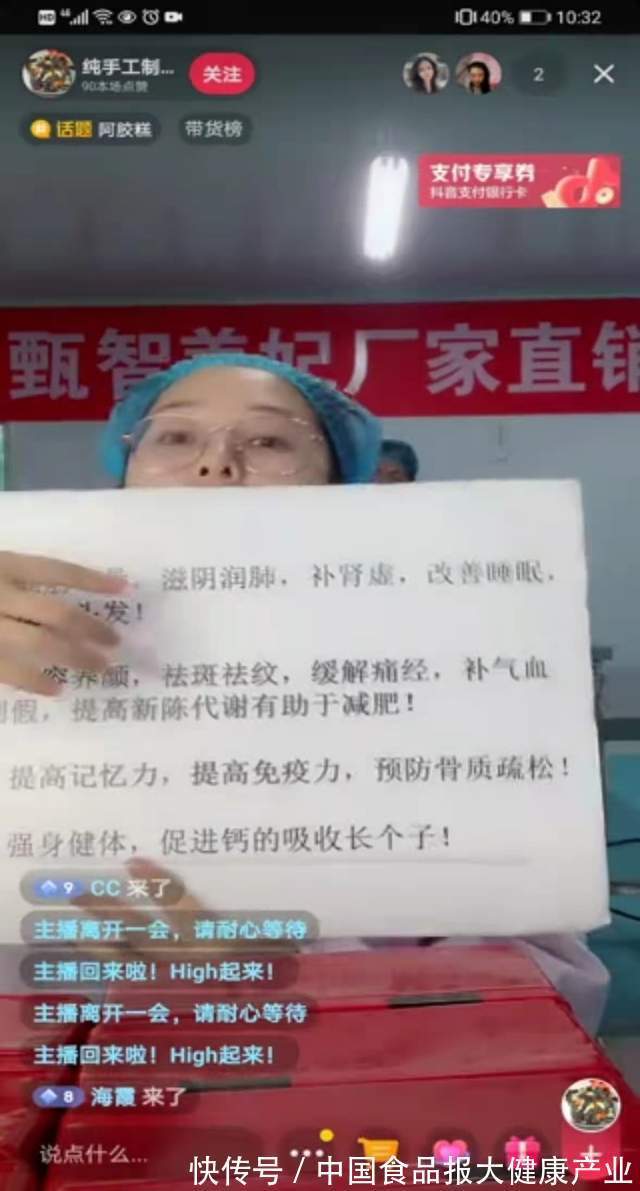 HD 46 40% 10:32
纯手工制... 关注 2
90本场点赞
话题 阿胶糕 带货榜
支付专享券
抖音支付银行卡
甄智美妃厂家直销
滋阴润肺，补肾虚，改善睡眠，
头发！
容养颜，祛斑祛纹，缓解痛经，补气血
例假，提高新陈代谢有助于减肥！
提高记忆力，提高免疫力，预防骨质疏松！
强身健体，促进钙的吸收长个子！
9 CC 来了
主播离开一会，请耐心等待
主播回来啦！High起来！
主播离开一会，请耐心等待
主播回来啦！High起来！
8 海霞 来了
说点什么...
快传号 / 中国食品报大健康产业